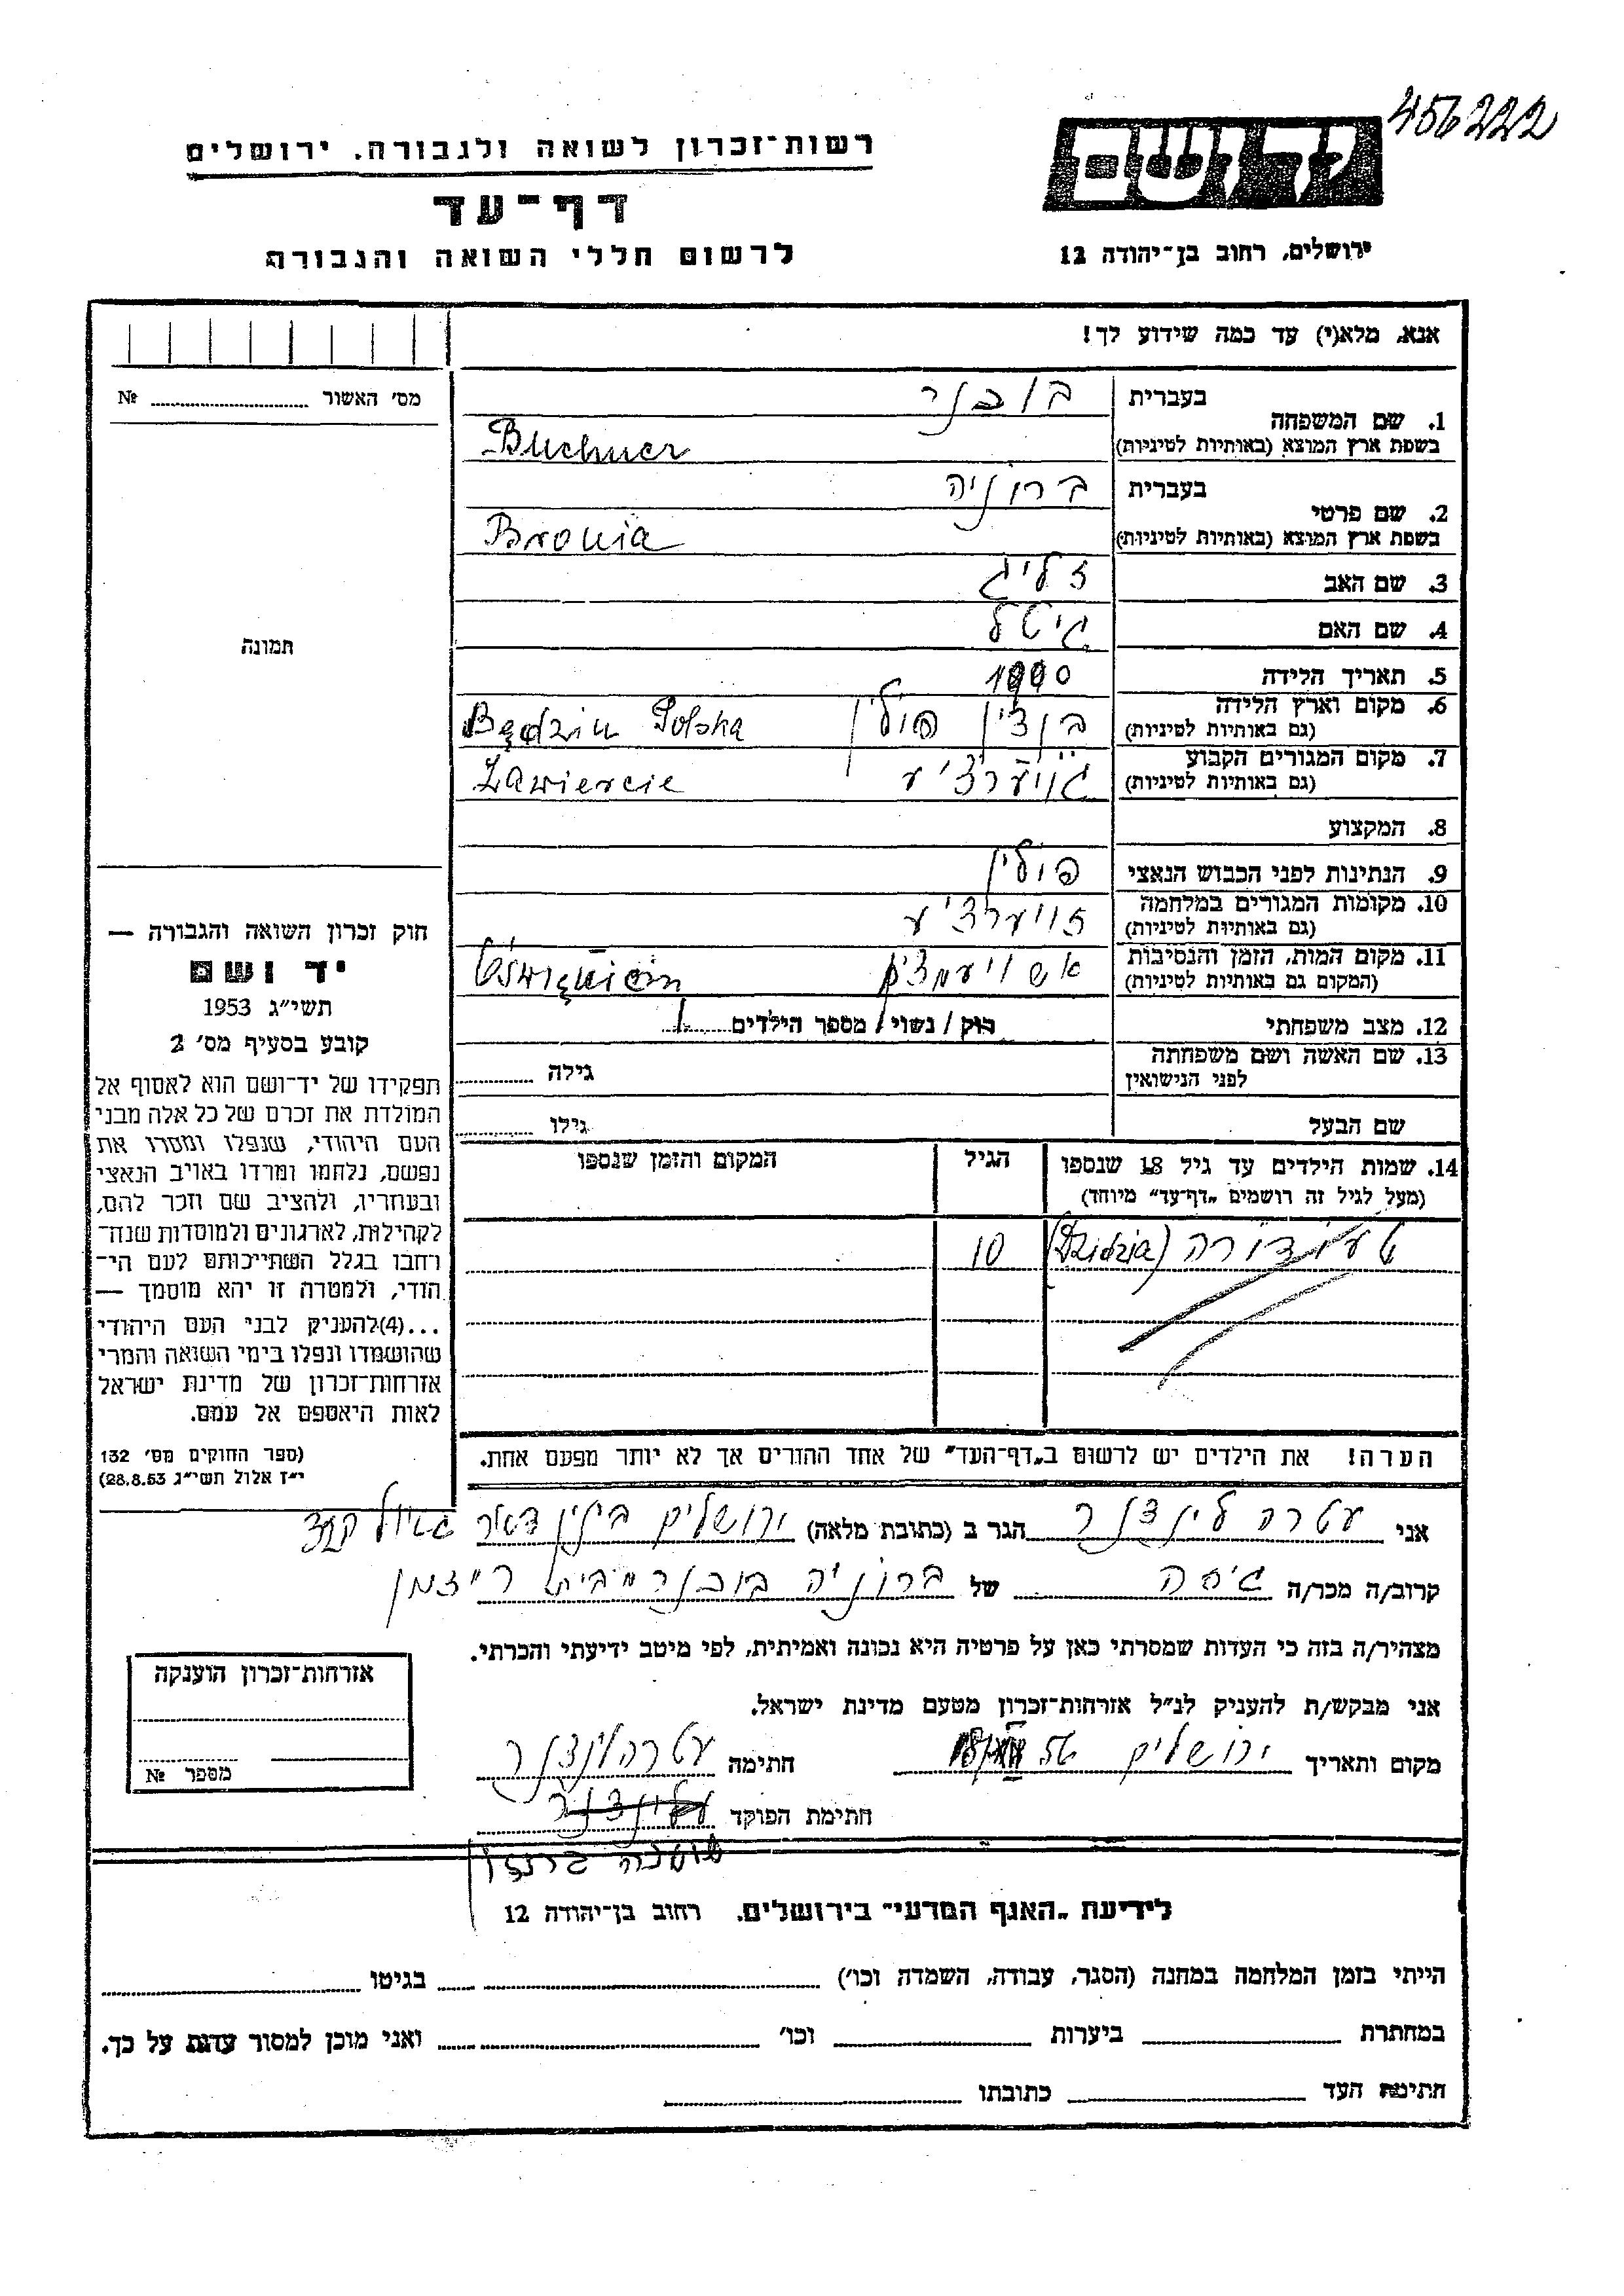 456222
יד ושם
רשות־זכרון לשואה ולגבורה, ירושלים
דף־עד
לרשום חללי השואה והגבורה
ירושלים, רחוב בן־יהודה 12
אנא, מלא(י) עד כמה שידוע לך!
מס׳ האשור № 
1. שם המשפחה
בעברית בוכנר
בשפת ארץ המוצא (באותיות לטיניות) Buchner
2. שם פרטי
בעברית ברוניה
בשפת ארץ המוצא (באותיות לטיניות) Bronia
3. שם האב זליג
4. שם האם גיטל
5. תאריך הלידה
6. מקום וארץ הלידה בנדין פולין Będzin Polska
(גם באותיות לטיניות)
7. מקום המגורים הקבוע Zawiercie
(גם באותיות לטיניות)
8. המקצוע
9. הנתינות לפני הכבוש הנאצי פולין
10. מקומות המגורים במלחמה זויערצ׳ע
(גם באותיות לטיניות)
11. מקום המות, הזמן והנסיבות
(המקום גם באותיות לטיניות)
12. מצב משפחתי רוק / נשוי / מספר הילדים 1
13. שם האשה ושם משפחתה גילה
לפני הנישואין
שם הבעל גילו
14. שמות הילדים עד גיל 18 שנספו הגיל המקום והזמן שנספו
(מעל לגיל זה רושמים „דף־עד״ מיוחד)
(Dzidzia) 10
הערה! את הילדים יש לרשום ב„דף־העד״ של אחד ההורים אך לא יותר מפעם אחת.
תמונה
חוק זכרון השואה והגבורה —
יד ושם
תשי״ג 1953
קובע בסעיף מס׳ 2
תפקידו של יד־ושם הוא לאסוף אל
המולדת את זכרם של כל אלה מבני
העם היהודי, שנפלו ומסרו את
נפשם, נלחמו ומרדו באויב הנאצי
ובעוזריו, ולהציב שם וזכר להם,
לקהילות, לארגונים ולמוסדות שנח־
רחבו בגלל השתייכותם לעם הי־
הודי, ולמטרה זו יהא מוסמך —
...(4)להעניק לבני העם היהודי
שהושמדו ונפלו בימי השואה והמרי
אזרחות־זכרון של מדינת ישראל
לאות היאספם אל עמם.
(ספר החוקים מס׳ 132
י״ז אלול תשי״ג 28.8.53)
אני עטרה לינדנר הגר ב (כתובת מלאה) ירושלים בינין
קרוב/ה מכר/ה גיסה של ברוניה בוכנר מבית רייזמן
מצהיר/ה בזה כי העדות שמסרתי כאן על פרטיה היא נכונה ואמיתית, לפי מיטב ידיעתי והכרתי.
אני מבקש/ת להעניק לנ״ל אזרחות־זכרון מטעם מדינת ישראל.
מקום ותאריך ירושלים 56 חתימה עטרה לינדנר
חתימת הפוקד
אזרחות־זכרון הוענקה
מספר №
לידיעת „האגף המדעי״ בירושלים, רחוב בן־יהודה 12
הייתי בזמן המלחמה במחנה (הסגר, עבודה, השמדה וכו׳) בגיטו
במחתרת ביערות וכו׳ ואני מוכן למסור עדות על כך.
חתימת העד כתובתו